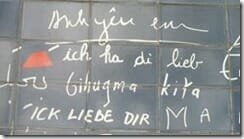 Anh yêu em
ich ha di lieb
Gihugma kita
ICK LIEBE DIR M A